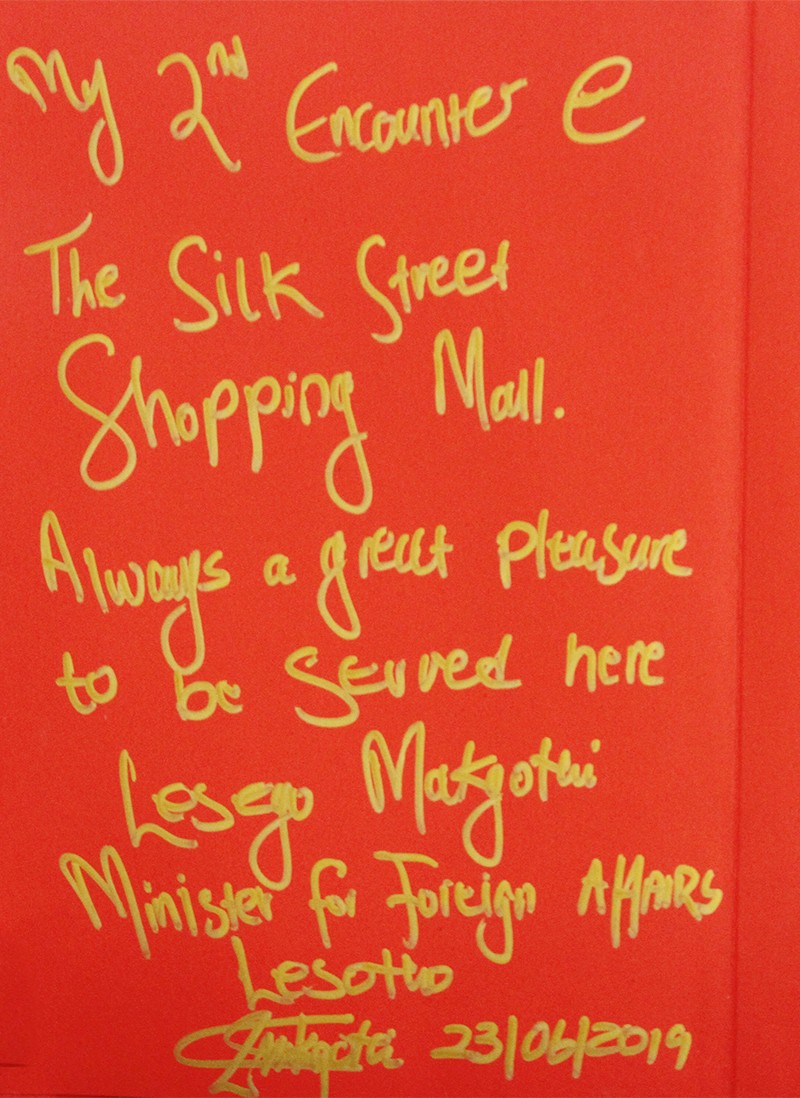 My 2nd Encounter e
The Silk Street
Shopping Mall.
Always a great pleasure
to be served here
Lesego Makgothi
Minister for Foreign AffAIRS
Lesotho
23/06/2019